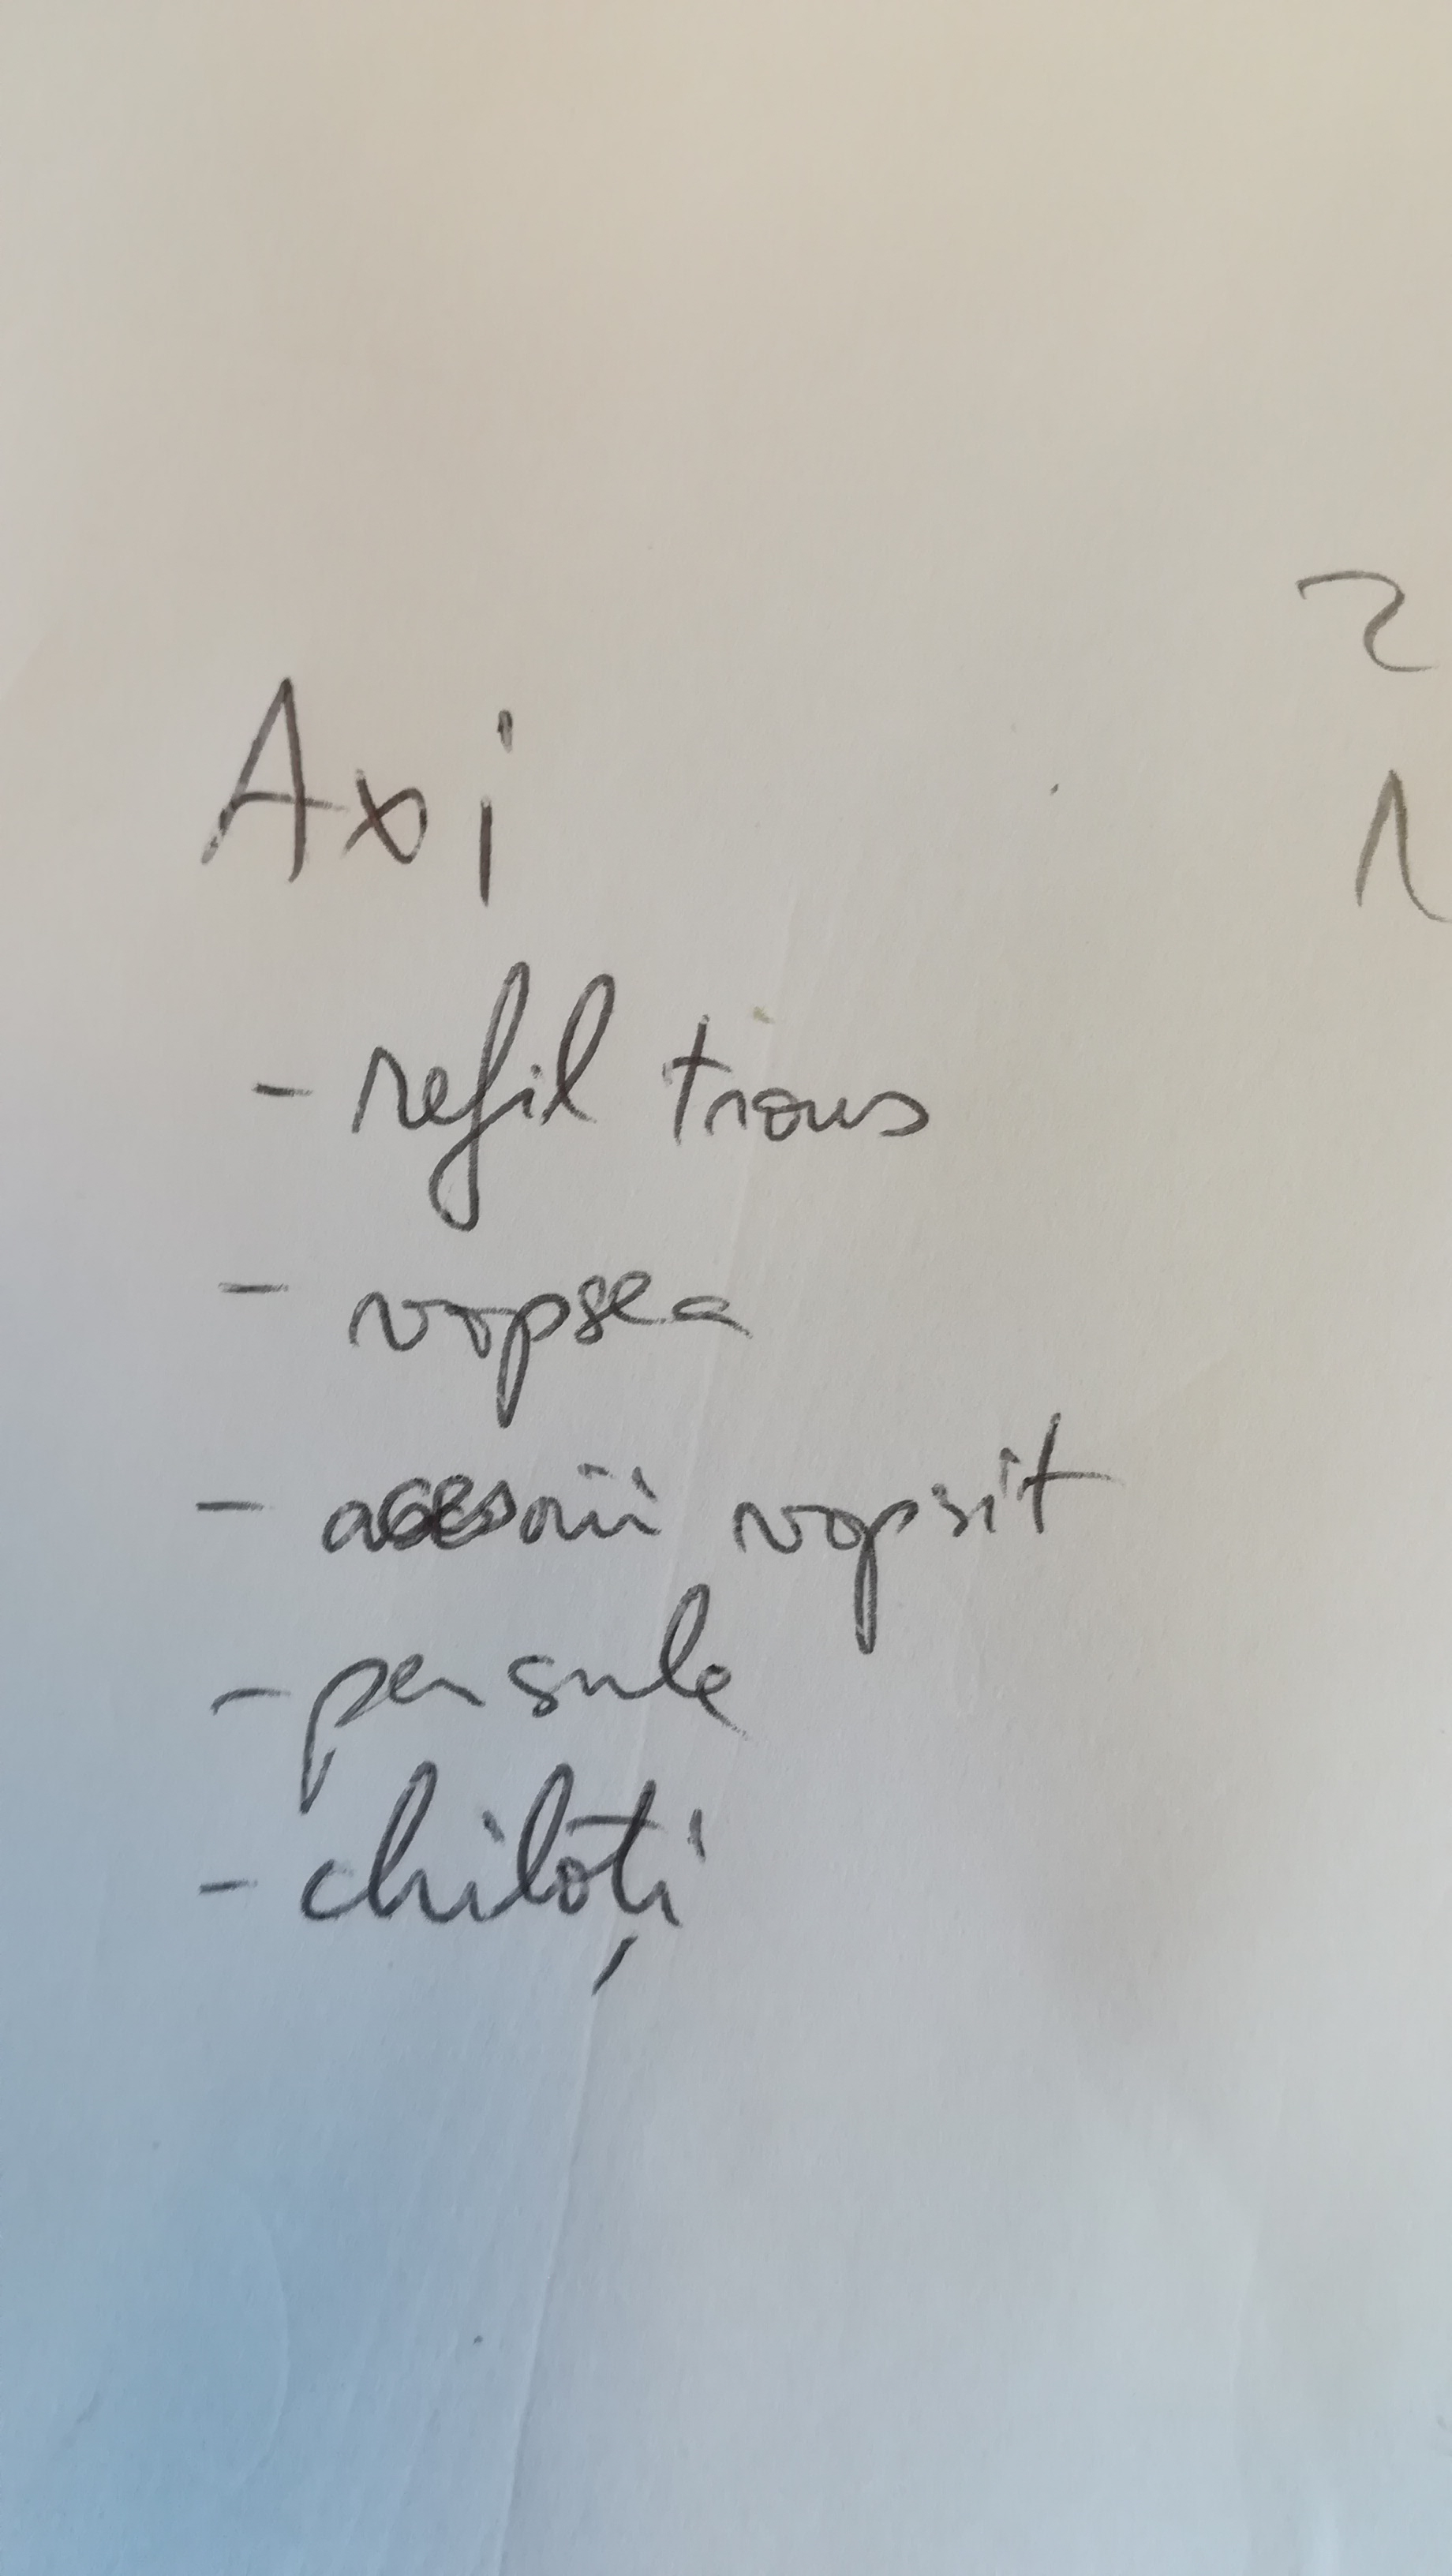 Axi
2
- refil trous
- vopsea
- acesorii vopsit
- pensule
- chiloți